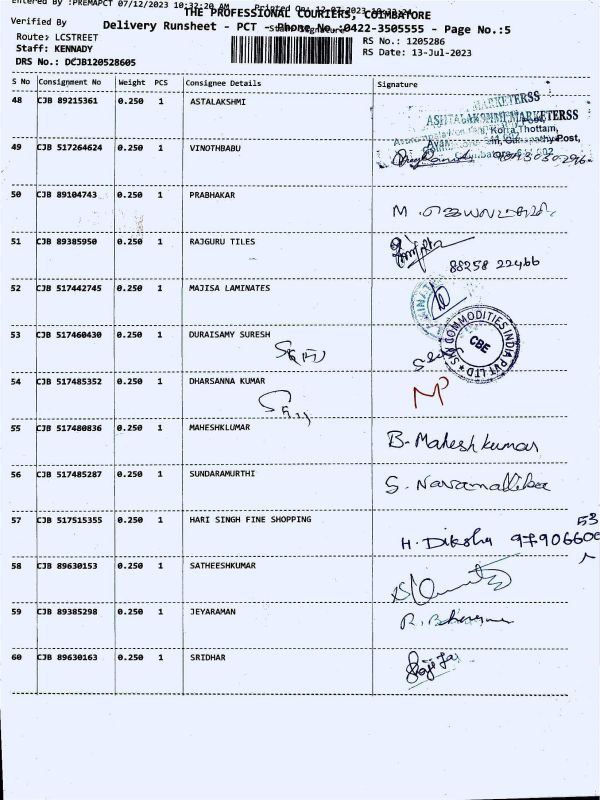 Entered By :PREMAPCT 07/12/2023 10:32:20 AM Printed On: 12-07-2023
THE PROFESSIONAL COURIERS, COIMBATORE
Verified By
Delivery Runsheet - PCT - Phone No.:0422-3505555 - Page No.:5
Staff Signature
Route: LCSTREET
RS No.: 1205286
Staff: KENNADY
RS Date: 13-Jul-2023
DRS No.: DCJB120528605
S No Consignment No Weight PCS Consignee Details Signature
48 CJB 89215361 0.250 1 ASTALAKSHMI
MARKETERSS
ASHTALAKSHMI MARKETERSS
Korra Thottam,
Post,
49 CJB 517264624 0.250 1 VINOTHBABU
50 CJB 89104743 0.250 1 PRABHAKAR
M.
51 CJB 89385950 0.250 1 RAJGURU TILES
88258 22466
52 CJB 517442745 0.250 1 MAJISA LAMINATES
53 CJB 517460430 0.250 1 DURAISAMY SURESH
COMMODITIES INDIA PVT LTD
CBE
54 CJB 517485352 0.250 1 DHARSANNA KUMAR
55 CJB 517480836 0.250 1 MAHESHKLUMAR
B. Mahesh kumar
56 CJB 517485287 0.250 1 SUNDARAMURTHI
S. Navamallika
57 CJB 517515355 0.250 1 HARI SINGH FINE SHOPPING
53
H. Diksha 97906600
58 CJB 89630153 0.250 1 SATHEESHKUMAR
59 CJB 89385298 0.250 1 JEYARAMAN
60 CJB 89630163 0.250 1 SRIDHAR